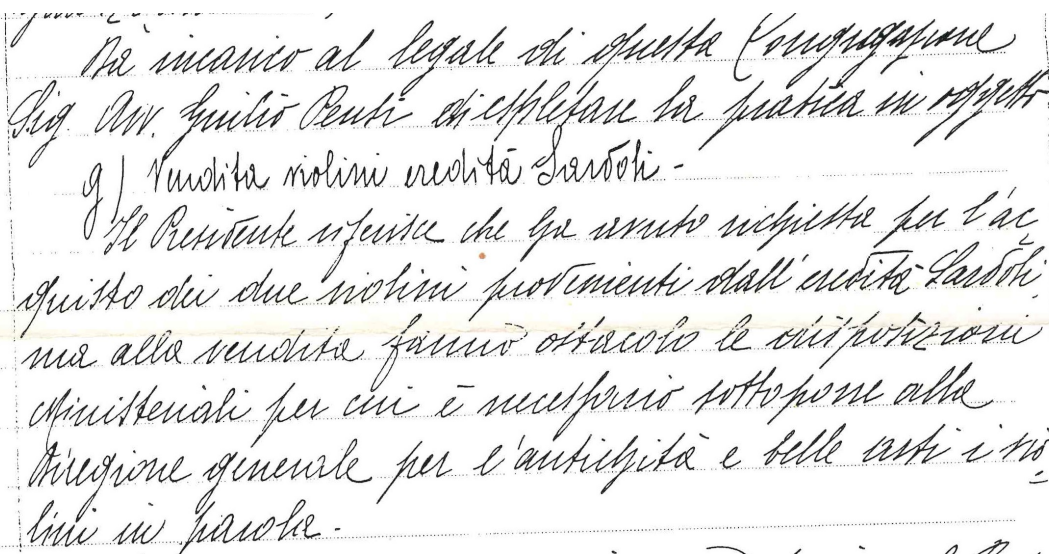 Dà incarico al legale di questa Congregazione
Sig. Avv. Giulio Penti di espletare la pratica in oggetto
g) Vendita violini eredità Sardoli -
Il Presidente riferisce che ha avuto richiesta per l'ac=
quisto dei due violini provenienti dall'eredità Sardoli,
ma alla vendita fanno ostacolo le disposizioni
Ministeriali per cui è necessario sottoporre alla
Direzione generale per l'antichità e belle arti i vio=
lini in parola.-